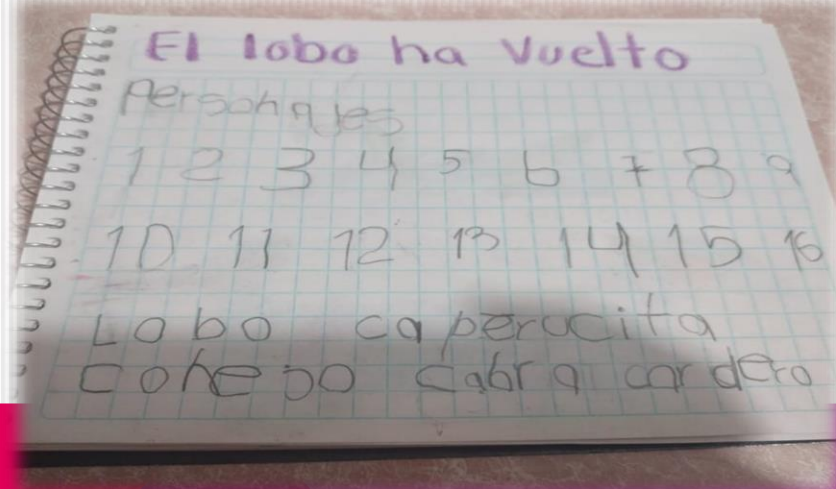 El lobo ha Vuelto
Personajes
1 2 3 4 5 6 7 8 9
10 11 12 13 14 15 16
Lobo caperucita
conejo cabra cordero